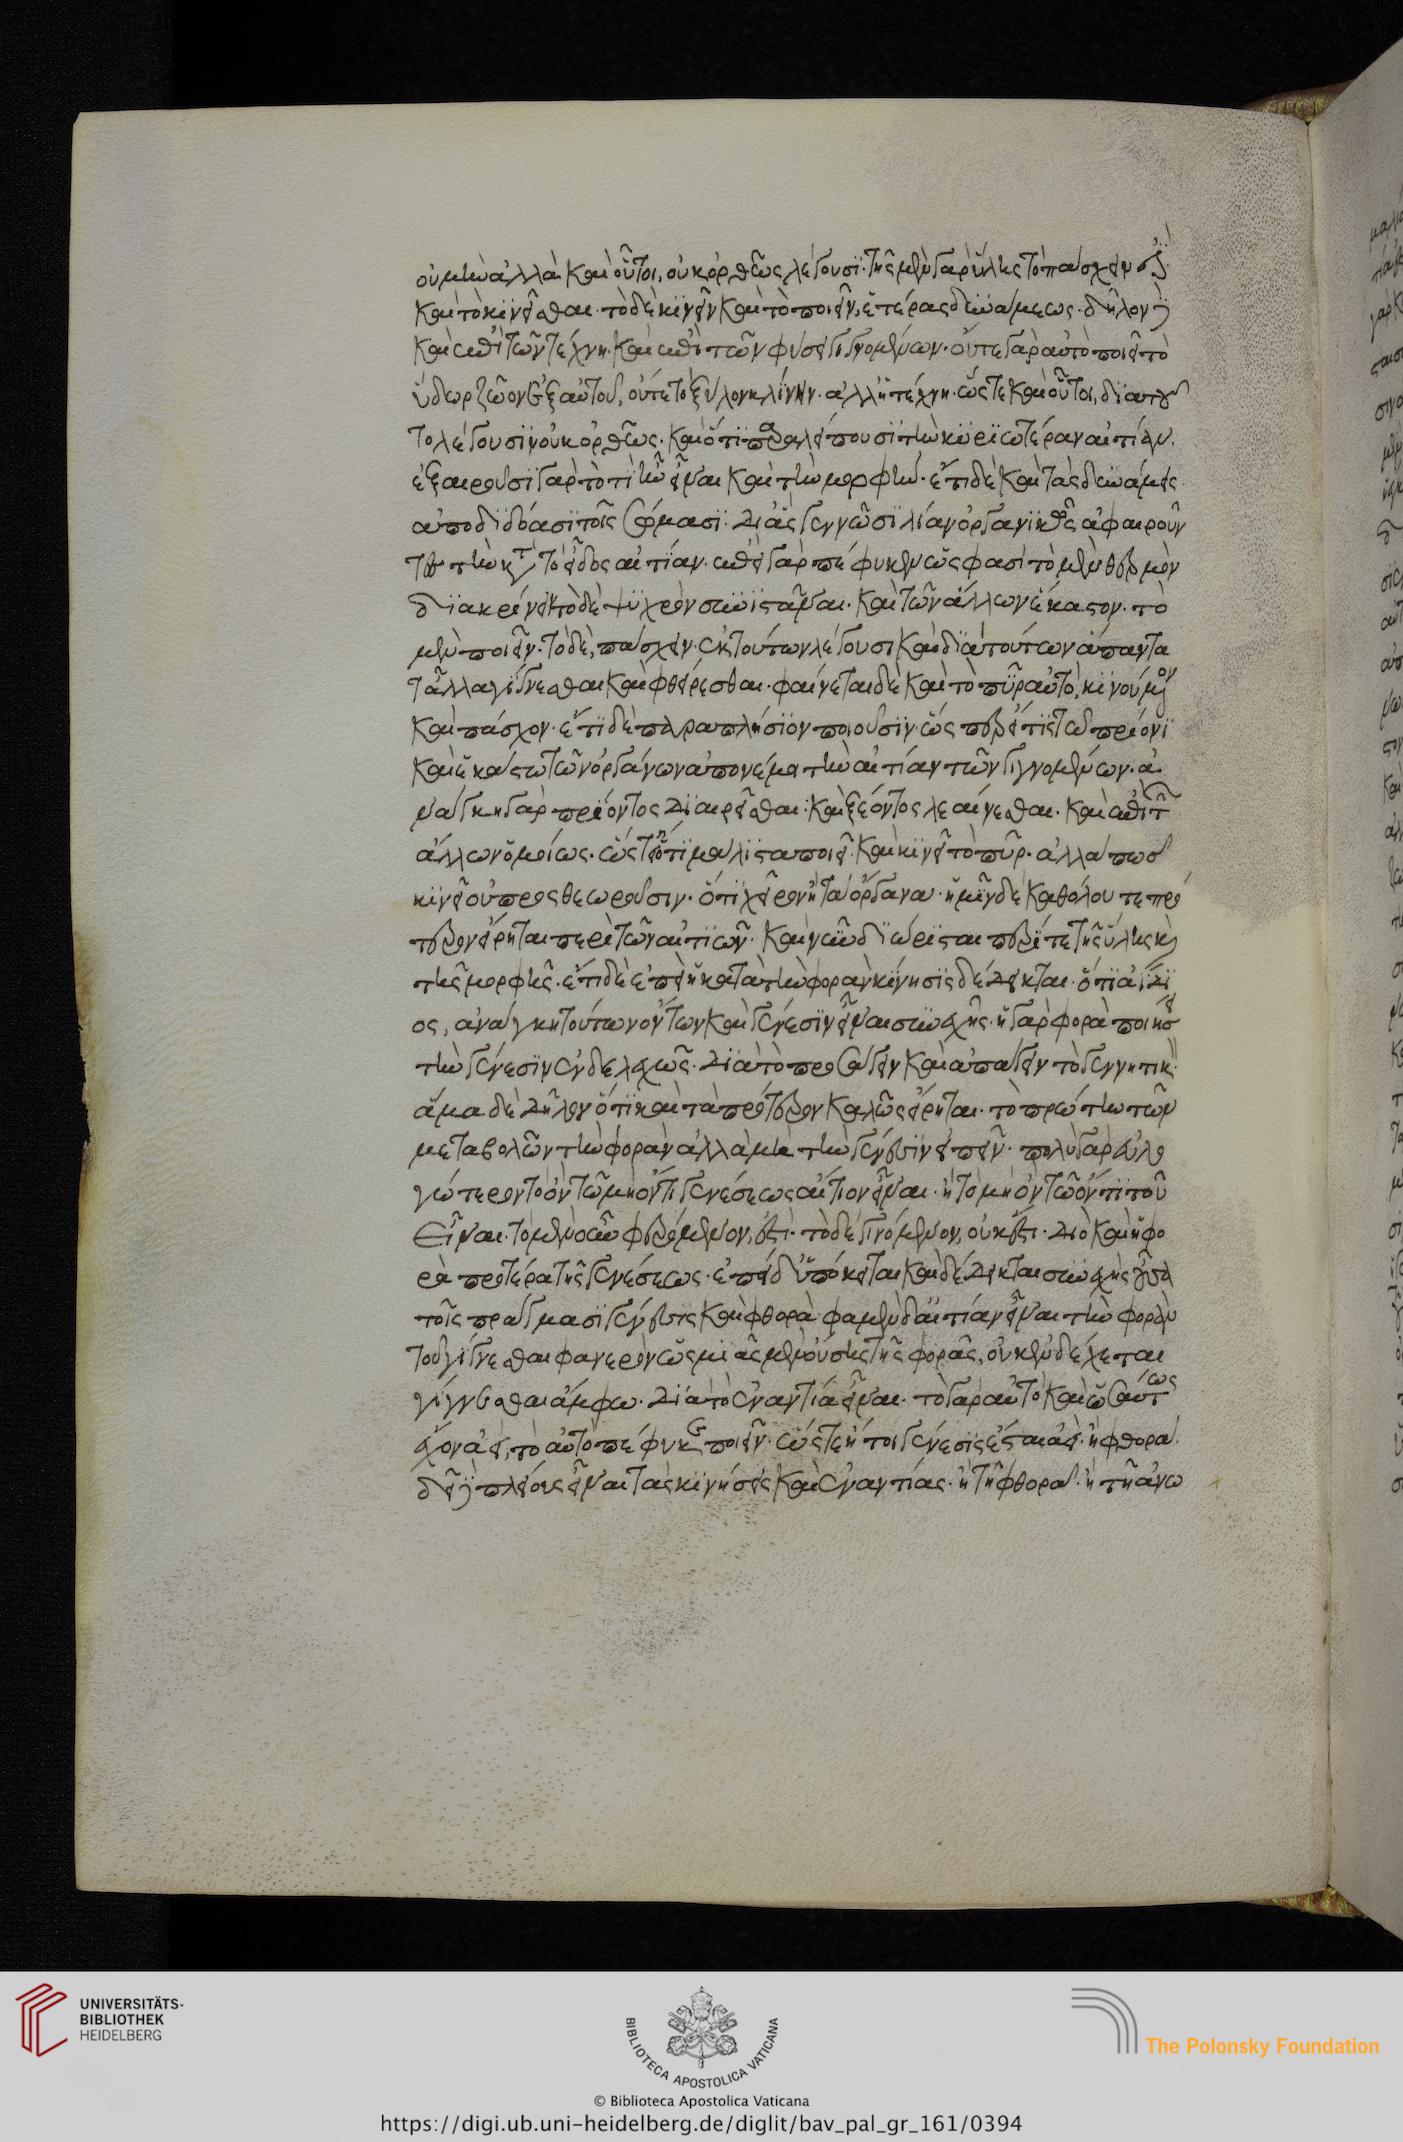 οὐ μὴν ἀλλὰ καὶ οὗτοι, οὐκ ὀρθῶς λέγουσϊ· τῆς μὲν γὰρ ὕλης τὸ πάσχειν ἐστὶ
καὶ τὸ κϊνεῖσθαι· τὸ δὲ κϊνεῖν καὶ τὸ ποιεῖν, ἑτέρας δυνάμεως· δῆλον δὲ
καὶ ἐπὶ τῶν τέχνη· καὶ ἐπὶ τῶν φύσει γιγνομένων· οὔτε γὰρ αὐτὸ ποιεῖ τὸ
ὕδωρ ζῶον ἐξ αὐτοῦ, οὔτε τὸ ξύλον κλίνην· ἀλλ' ἡ τέχνη· ὥστε καὶ οὗτοι, διὰ τοῦ
το λέγουσϊν οὐκ ὀρθῶς· καὶ ὅτϊ παραλείπουσϊ τὴν κϋρϊωτέραν αἰτίαν·
ἐξαιροῦσϊ γὰρ τὸ τί ἦν εἶναι καὶ τὴν μορφήν· ἔτι δὲ καὶ τὰς δυνάμεις
ἀποδϊδόασϊ τοῖς σώμασϊ· δι' ἃς γεννῶσϊ λίαν ὀργανϊκῶς ἀφαιροῦν
τες τὴν κατὰ τὸ εἶδος αἰτίαν· ἐπεὶ γὰρ πέφυκεν ὥς φασϊ τὸ μὲν θερμὸν
διακρίνειν τὸ δὲ ψϋχρὸν συνϊστάναι· καὶ τῶν ἄλλων ἕκαστον· τὸ
μὲν ποιεῖν· τὸ δὲ, πάσχειν· ἐκ τούτων λέγουσι καὶ διὰ τούτων ἅπαντα
τἆλλα γίγνεσθαι καὶ φθείρεσθαι· φαίνεται δὲ καὶ τὸ πῦρ αὐτὸ, κϊνούμενον
καὶ πάσχον· ἔτϊ δὲ παραπλήσϊον ποιοῦσϊν· ὥσπερ εἴ τϊς τῶ πρίονϊ
καὶ ἑκάστω τῶν ὀργάνων ἀπονέμοι τὴν αἰτίαν τῶν γιγνομένων· ἀ
νάγκη γὰρ πρίοντος διαιρεῖσθαι· καὶ ξέοντος λεαίνεσθαι· καὶ ἐπὶ τῶν
ἄλλων ὁμοίως· ὥστ' εἰ ὅτϊ μάλϊστα ποιεῖ· καὶ κϊνεῖ τὸ πῦρ· ἀλλὰ πῶς
κϊνεῖ οὐ προσθεωροῦσιν· ὅτϊ χεῖρον ἢ τὰ ὄργανα· ἡμῖν δὲ καθόλου τε πρό
τερον εἴρηται περὶ τῶν αἰτϊῶν· καὶ νῦν διώρϊσται περί τε τῆς ὕλης καὶ
τῆς μορφῆς· ἔτι δὲ ἐπεὶ ἡ κατὰ τὴν φορὰν κίνησϊς δέδεικται· ὅτϊ ἀΐδϊ
ος, ἀνάγκη τούτων ὄντων καὶ γένεσϊν εἶναι συνεχῆς· ἡ γὰρ φορὰ ποιήσει
τὴν γένεσϊν ἐνδελεχῶς· διὰ τὸ προσάγειν καὶ ἀπάγειν τὸ γεννητικόν·
ἅμα δὲ δῆλον ὅτϊ καὶ τὰ πρότερον καλῶς εἴρηται· τὸ πρώτην τῶν
μεταβολῶν τὴν φορὰν ἀλλὰ μὴ τὴν γένεσϊν εἰπεῖν· πολὺ γὰρ εὐλο
γώτερον τὸ ὂν τῶ μὴ ὄντϊ γενέσεως αἴτιον εἶναι· ἢ τὸ μὴ ὂν τῶ ὄντϊ τοῦ
εἶναι· τὸ μὲν οὖν φερόμενον, ἐστὶ· τὸ δὲ γινόμενον, οὐκ ἔστι· διὸ καὶ ἡ φο
ρὰ προτέρα τῆς γενέσεως· ἐπεὶ δ' ὑπόκειται καὶ δέδεικται συνεχὴς οὖσα
τοῖς πράγμασϊ γένεσϊς καὶ φθορὰ· φαμὲν δ' αἰτίαν εἶναι τὴν φορὰν
τοῦ γίγνεσθαι φανερὸν ὡς μϊᾶς μὲν οὔσης τῆς φορᾶς, οὐκ ἐνδέχεται
γίγνεσθαι ἄμφω· διὰ τὸ ἐναντία εἶναι· τὸ γὰρ αὐτὸ καὶ ὡσαύτως
ἔχον ἀεὶ, τὸ αὐτὸ πέφυκε ποιεῖν· ὥστε ἤτοι γένεσϊς ἔσται ἀεὶ· ἢ φθορά·
δεῖ δὲ πλείους εἶναι τὰς κϊνήσεις καὶ ἐναντίας· ἢ τῆ φθορᾶ· ἢ τῆ ἀνω
UNIVERSITÄTS-
BIBLIOTHEK
HEIDELBERG
BIBLIOTECA APOSTOLICA VATICANA
© Biblioteca Apostolica Vaticana
The Polonsky Foundation
https://digi.ub.uni-heidelberg.de/diglit/bav_pal_gr_161/0394